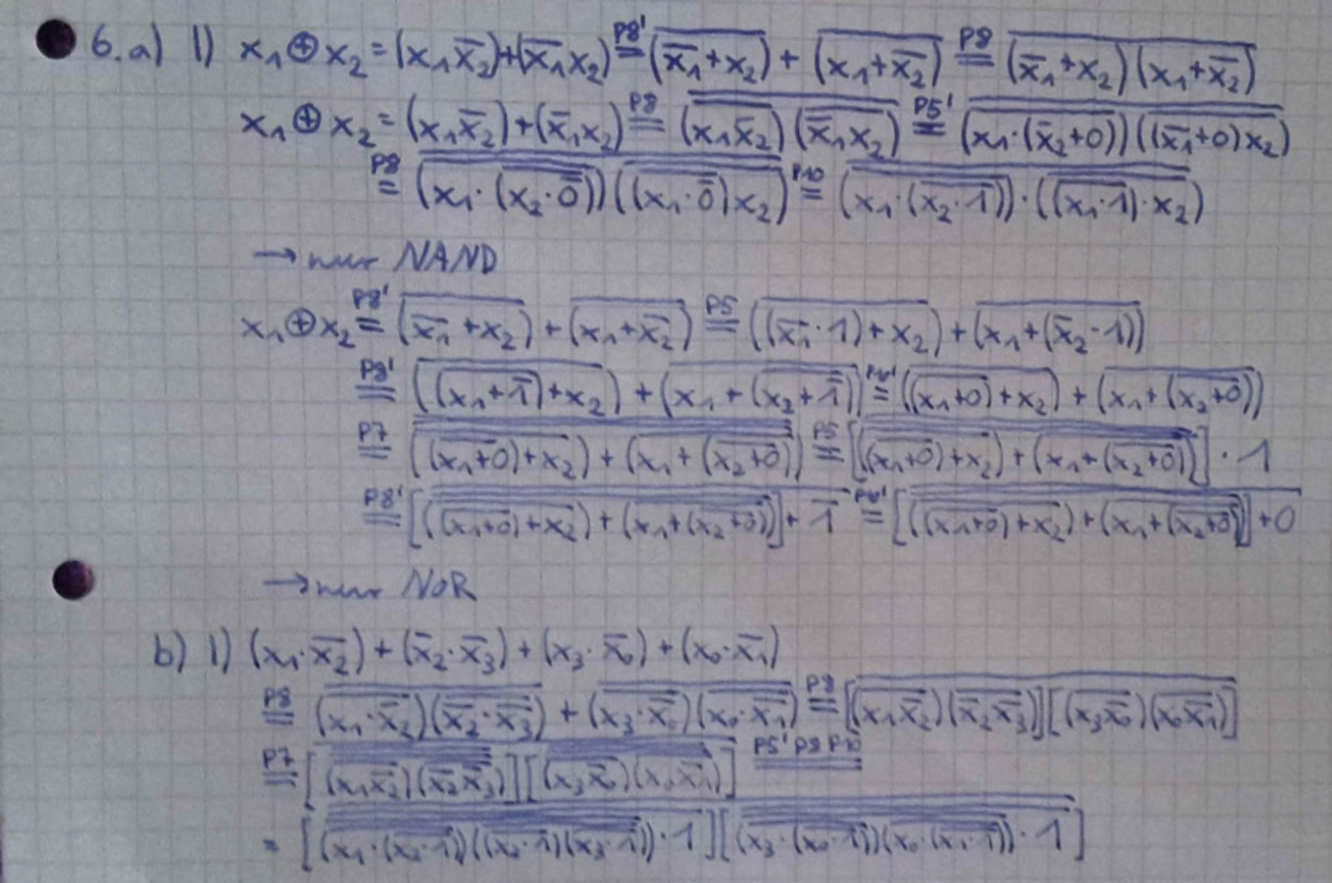 6. a) 1) x₁ ⊕ x₂ = (x₁x̅₂)+(x̅₁x₂) =^{P8'} \overline{(x̅₁+x₂)} + \overline{(x₁+x̅₂)} =^{P8} \overline{(x̅₁+x₂)(x₁+x̅₂)}
x₁ ⊕ x₂ = (x₁x̅₂)+(x̅₁x₂) =^{P8} \overline{\overline{(x₁x̅₂)}\overline{(x̅₁x₂)}} =^{P5'} \overline{\overline{(x₁·(x̅₂+0))}\overline{((x̅₁+0)x₂)}}
=^{P8} \overline{\overline{(x₁·\overline{(x₂·\overline{0})})}\overline{(\overline{(x₁·\overline{0})}x₂)}} =^{P10} \overline{\overline{(x₁·\overline{(x₂·1)})}·\overline{(\overline{(x₁·1)}·x₂)}}
→ nur NAND
x₁⊕x₂ =^{P8'} \overline{(x̅₁+x₂)} + \overline{(x₁+x̅₂)} =^{P5} \overline{((x̅₁·1)+x₂)} + \overline{(x₁+(x̅₂·1))}
=^{P8'} \overline{(\overline{(x₁+\overline{1})}+x₂)} + \overline{(x₁+\overline{(x₂+\overline{1})})} =^{P10'} \overline{(\overline{(x₁+0)}+x₂)} + \overline{(x₁+\overline{(x₂+0)})}
=^{P7} \overline{\overline{\overline{(\overline{(x₁+0)}+x₂)} + \overline{(x₁+\overline{(x₂+0)})}}} =^{P5} [\overline{\overline{\overline{(\overline{(x₁+0)}+x₂)} + \overline{(x₁+\overline{(x₂+0)})}}}]·1
=^{P8'} \overline{[\overline{\overline{(\overline{(x₁+0)}+x₂)} + \overline{(x₁+\overline{(x₂+0)})}}] + \overline{1}} =^{P10'} \overline{[\overline{\overline{(\overline{(x₁+0)}+x₂)} + \overline{(x₁+\overline{(x₂+0)})}}] + 0}
→ nur NOR
b) 1) (x₁·x̅₂) + (x̅₂·x̅₃) + (x₃·x̅₀) + (x₀·x̅₁)
=^{P8} \overline{\overline{(x₁·x̅₂)}\overline{(x̅₂·x̅₃)}} + \overline{\overline{(x₃·x̅₀)}\overline{(x₀·x̅₁)}} =^{P8} \overline{[\overline{(x₁x̅₂)}\overline{(x̅₂x̅₃)}][\overline{(x₃x̅₀)}\overline{(x₀x̅₁)}]}
=^{P7} \overline{[\overline{\overline{\overline{(x₁x̅₂)}\overline{(x̅₂x̅₃)}}}][\overline{\overline{\overline{(x₃x̅₀)}\overline{(x₀x̅₁)}}}]} =^{P5' P8 P10}